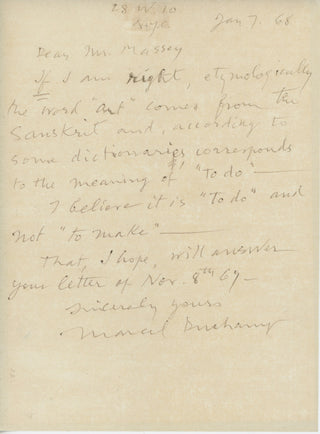 28 W. 10
N.Y.C.
Jan 7. 68
Dear Mr. Massey
If I am right, etymologically
the word "art" comes from the
Sanskrit and, according to
some dictionaries, corresponds
to the meaning of "To do" —
I believe it is "To do" and
not "to make" —
That, I hope, will answer
your letter of Nov. 8th 67 —
Sincerely yours
Marcel Duchamp